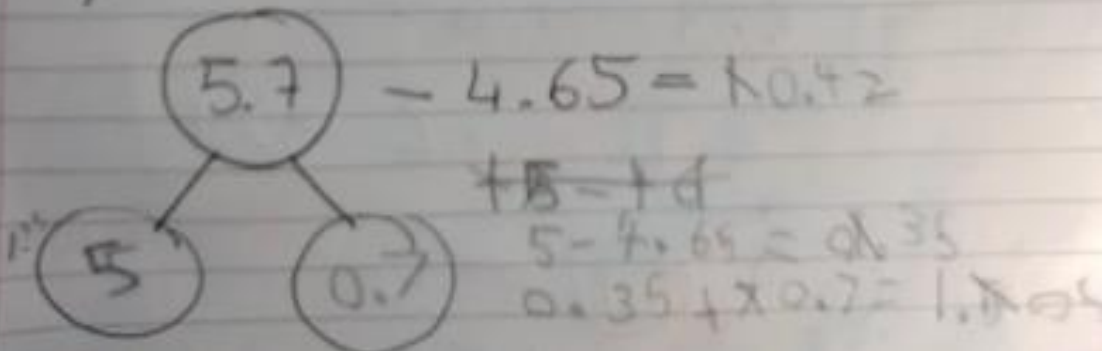 5.7 - 4.65 = 0.42
5 0.7
5 - 4.65 = 0.35
0.35 + 0.7 = 1.05